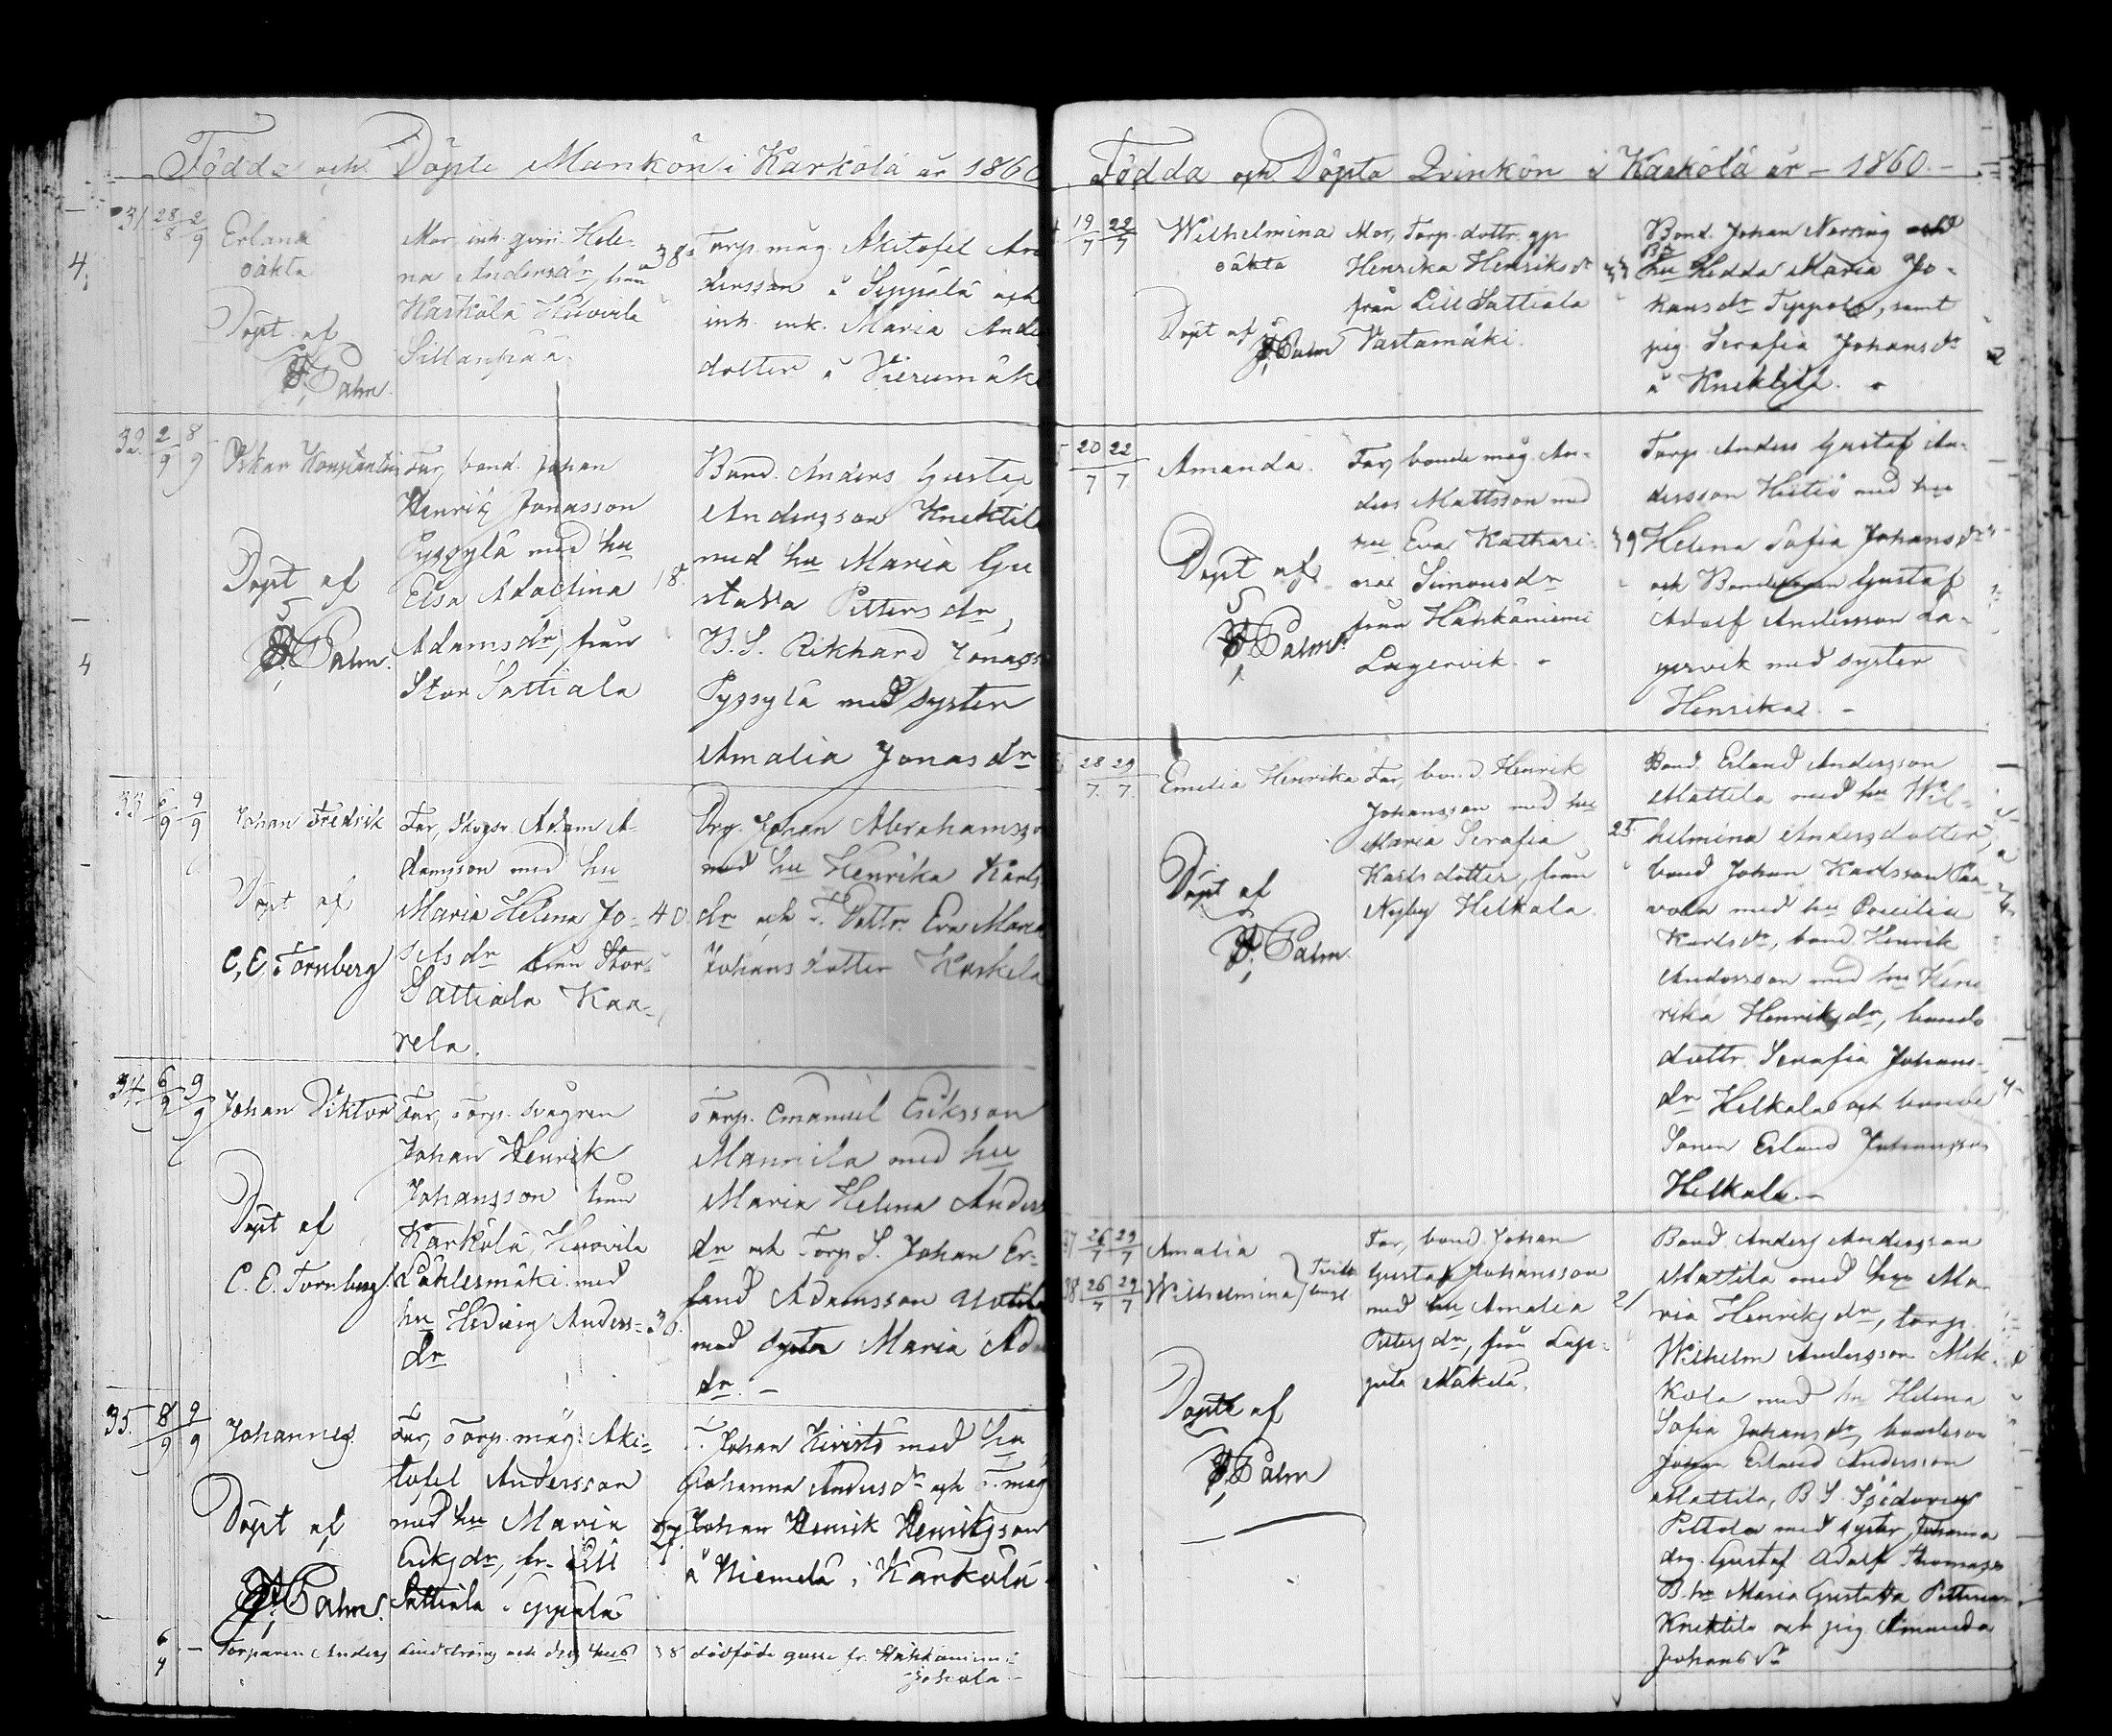 Födda och Döpte Mankön i Karkölä år 1860
31 28/8 2/9 Erland
oäkta
Döpt af
Palm.
Mor, inh. qvin. Hele-
na Andersdr från
Karkölä Huovila
Sillanpää.
38
Torp. måg Akitofel An
dersson å Seppälä och
inh. enk. Maria Ande
dotter å Vierumäk
32. 2/9 8/9 Oskar Konstantin
Döpt af
Palm.
Far, bond. Johan
Henrik Jonasson
Pyssylä med hu
Elsa Adolfina
Adamsdr, från
Stor Sattiala
18
Bond. Anders Gustaf
Andersson Knektil
med hu Maria Gu
stava Pettersdr,
B. S. Rikhard Jonass
Pyssylä med syster
Amalia Jonasdr
33 6/9 9/9 Johan Fredrik
Döpt af
C. E. Tornberg
Far, Adam A-
damsson med hu
Maria Helena Jo-
sefsdr från Stor
Sattiala Kaa-
rela.
40
Drg. Johan Abrahamsso
med hu Henrika Karls
dr och T. Dottr. Eva Maria
Johansdotter Koskela
34. 6/9 9/9 Johan Viktor
Döpt af
C. E. Tornberg
Far, Torp. svågren
Johan Henrik
Johansson från
Karkölä, Huovila
med
hu Hedvig Anders-
dr
30.
Torp. Emanuel Eriksson
Mannila med hu
Maria Helena Anders
dr och Torp S. Johan Er-
land Adamsson
med syster Maria Ada
dr. –
35. 8/9 9/9 Johannes.
Döpt af
Palm.
Far, Torp. måg. Aki-
tofel Andersson
med hu Maria
Eriksdr, fr. Lill
Sattiala Seppälä
27.
T. Johan Kivistö med hu
Johanna Andersdr och T. måg
Johan Henrik Henriksson
å Niemelä, i Karkölä
6/9 – Torparen Anders Lindström och dess hus 38 dödföde gosse fr. Hähkäniemi
Födda och Döpta Qvinkön i Karkölä år – 1860. –
19/7 22/7 Wilhelmina
oäkta
Döpt af
Palm
Mor, Torp. dottr. qp
Henrika Henriksdr
från Lill Sattiala
Vastamäki.
Bond. Johan Norring
hu Hedda Maria Jo-
hansdr Seppälä, samt
pig. Serafia Johansdr
å Knektilä.
20/7 22/7 Amanda.
Döpt af
Palm
Far, bonde måg An-
ders Mattsson med
hu Eva Kathari-
na Simonsdr
från Hähkäniemi
Lagervik. –
39
Torp. Anders Gustaf An-
dersson Hietio med hu
Helena Sofia Johansdr
och Bonde Gustaf
Adolf Andersson La-
gervik med syster
Henrika. –
28/7 29/7 Emelia Henrika
Döpt af
Palm.
Far, bond. Henrik
Johansson med hu
Maria Serafia
Karlsdotter, från
Nyby Helkala
25.
Bond Erland Andersson
Mattila med hu Wil-
helmina Andersdotter,
bond Johan Karlsson Paa-
vola med hu Coecilia
Karlsdr, bond. Henrik
Andersson med hu Hen
rika Henriksdr, bonde
dottr. Serafia Johans-
dr Helkala och bonde
Sonen Erland Johansson
Helkala. –
37 26/7 29/7 Amalia
38 26/7 29/7 Wilhelmina
Döpte af
Palm
Far, bond. Johan
Gustaf Johansson
med hu Amalia
Pettersdr, från Lap-
pola Mäkelä.
21
Bond Anders Andersson
Mattila med hu Ma-
ria Henriksdr, torp.
Wilhelm Andersson Mik-
kola med hu Helena
Sofia Johansdr, bondeson
Johan Erland Andersson
Mattila, B S. Isidorus
Pettola med syster Johanna
drg. Gustaf Adolf Thomass
B. hu Maria Gustava Petters
Knektila och pig Amanda
Johansdr